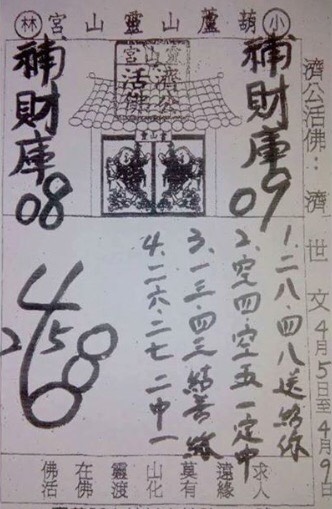 小葫蘆山靈山宮林
濟公活佛：濟世文4月5日至4月9日
補財庫09
靈山宮
濟公活佛
補財庫08
1、二八、四八送給你
2、空四、空五一定中
3、一三、四三結善緣
4、二六、二七二中一
4
2 5 8
6
佛在靈山莫遠求
活佛渡化有緣人